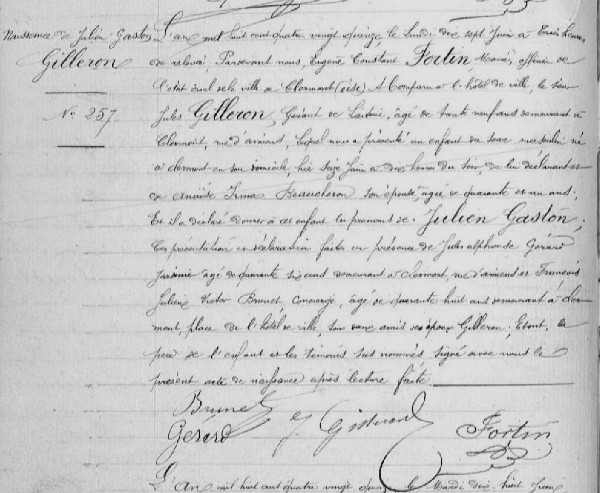 Naissance de Julien Gaston
Gilleron
N° 257
L'an mil huit cent quatre vingt quinze le Lundi dix sept Juin à trois heures
de relevée, Pardevant nous, Eugène Constant Fortin Maire, officier de
l'état civil de la ville de Clermont (oise) A Comparu à l'hôtel de ville, le sieur
Jules Gilleron, âgé de trente neuf ans demeurant à
Clermont, rue d'amiens, Lequel nous a présenté un enfant du sexe masculin né
à clermont en son domicile, hier seize Juin à dix heures du soir, de lui déclarant et
de Irma son épouse, âgée de quarante et un ans;
Et il a déclaré donner à cet enfant les prénoms de Julien Gaston;
Ces présentation et déclaration faites en présence de Jules alphonse Gérard
âgé de quarante six ans demeurant à clermont, rue d'amiens et François
Julien Victor Brunet, Concierge, âgé de quarante huit ans demeurant à Cler
mont, place de l'hôtel de ville, tous deux amis des époux Gilleron; Et ont, le
père de l'enfant et les témoins sus nommés, signé avec nous le
présent acte de naissance après lecture faite.
Brunet
Gérard J. Gilleron Fortin
L'An mil huit cent quatre vingt quinze le Mardi dix huit Juin